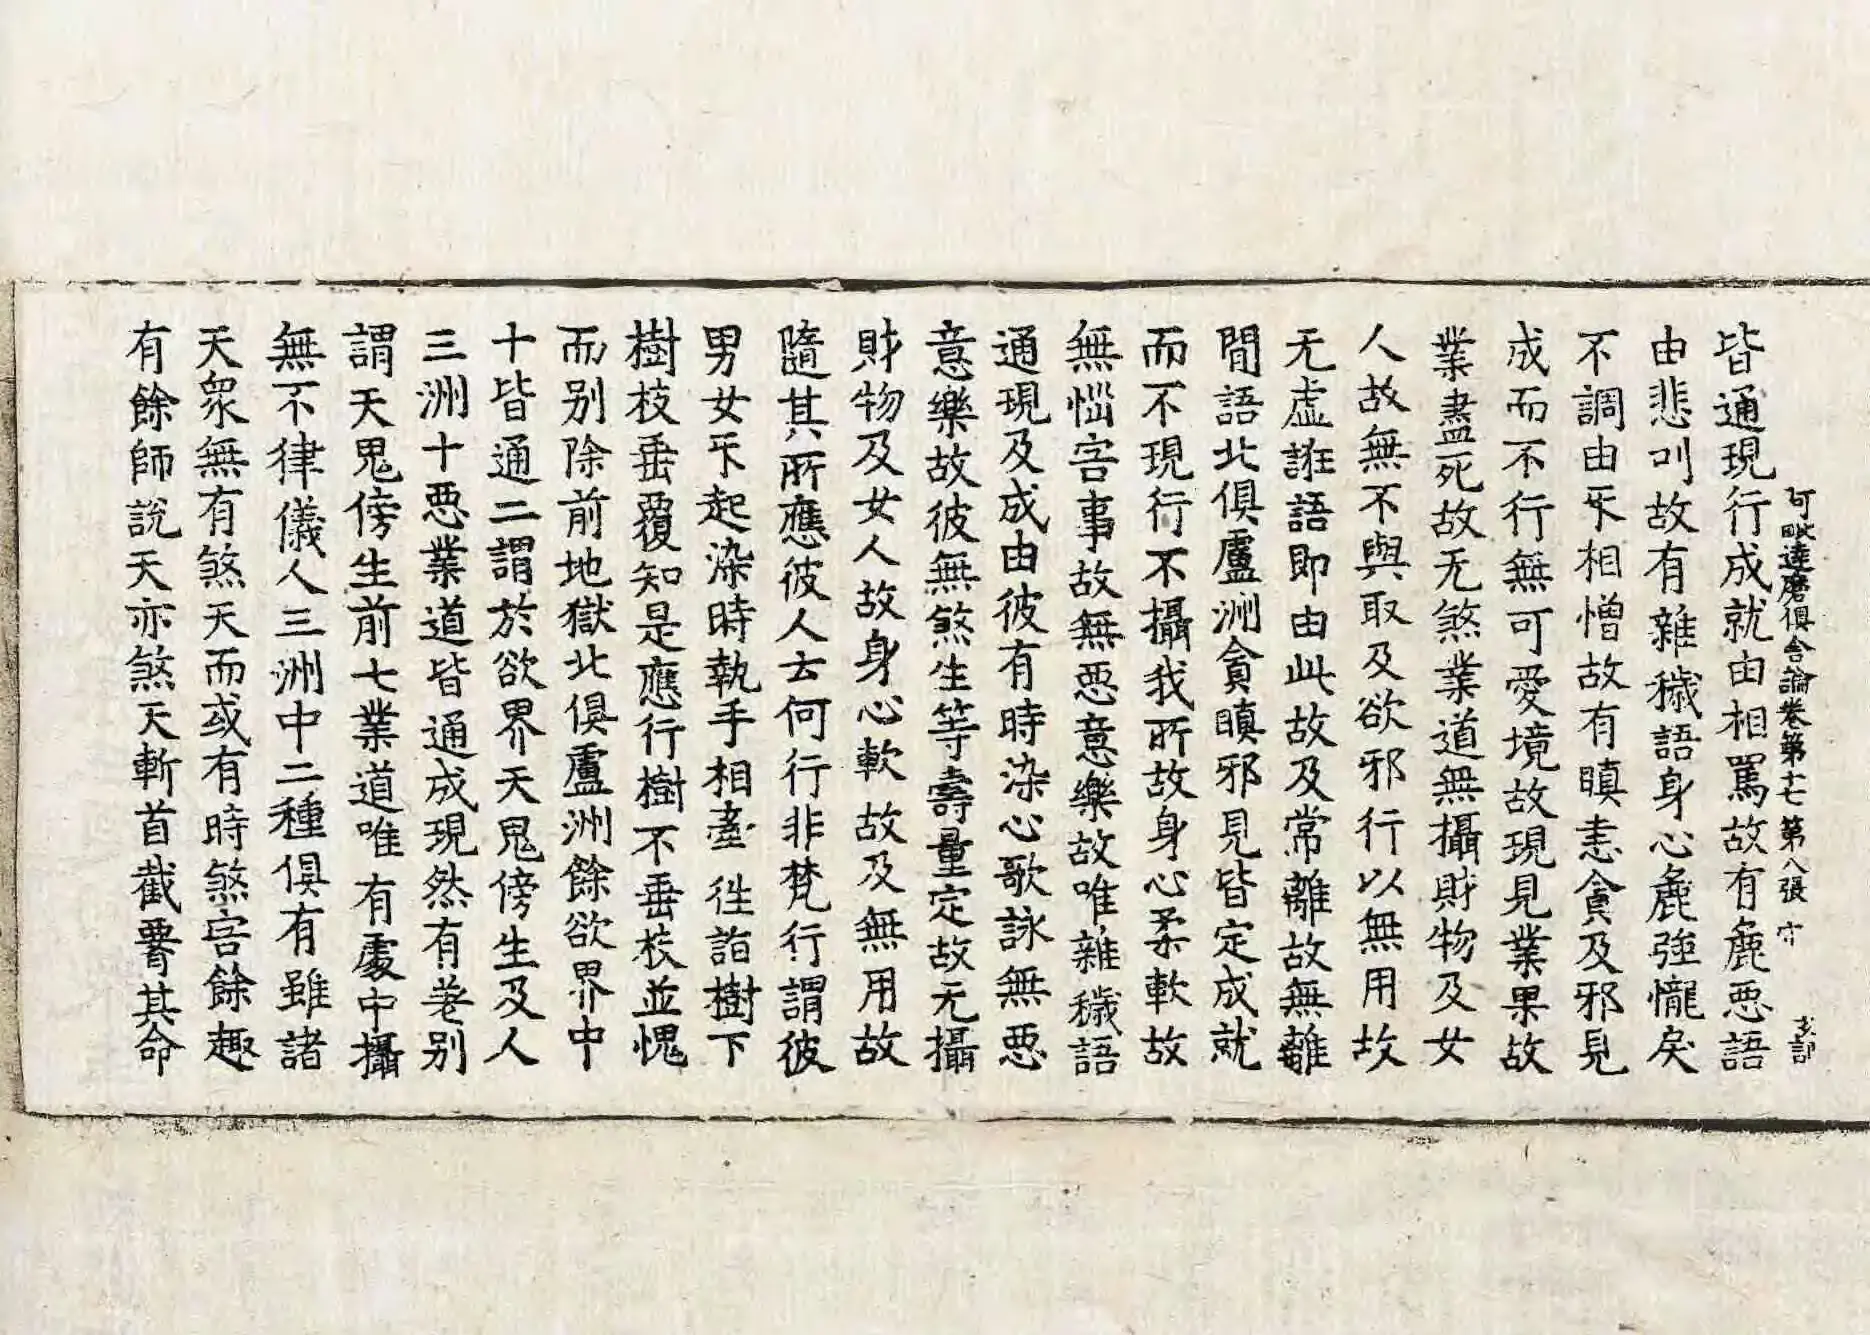 阿毗達磨俱舍論卷第十七 第八張 守
皆通現行成就由相罵故有麁惡語
由悲叫故有雜穢語身心麁強𢤱戾
不調由不相憎故有瞋恚貪及邪見
成而不行無可愛境故現見業果故
業盡死故无煞業道無攝財物及女
人故無不與取及欲邪行以無用故
无虛誑語即由此故及常離故無離
間語北俱盧洲貪瞋邪見皆定成就
而不現行不攝我所故身心柔軟故
無惱害事故無惡意樂故唯雜穢語
通現及成由彼有時染心歌詠無惡
意樂故彼無煞生等壽量定故无攝
財物及女人故身心軟故及無用故
隨其所應彼人去何行非梵行謂彼
男女㸦起染時執手相牽徃詣樹下
樹枝垂覆知是應行樹不垂枝並愧
而別除前地獄北俱盧洲餘欲界中
十皆通二謂於欲界天鬼傍生及人
三洲十惡業道皆通成現然有差別
謂天鬼傍生前七業道唯有處中攝
無不律儀人三洲中二種俱有雖諸
天衆無有煞天而或有時煞害餘趣
有餘師說天亦煞天斬首截臂其命